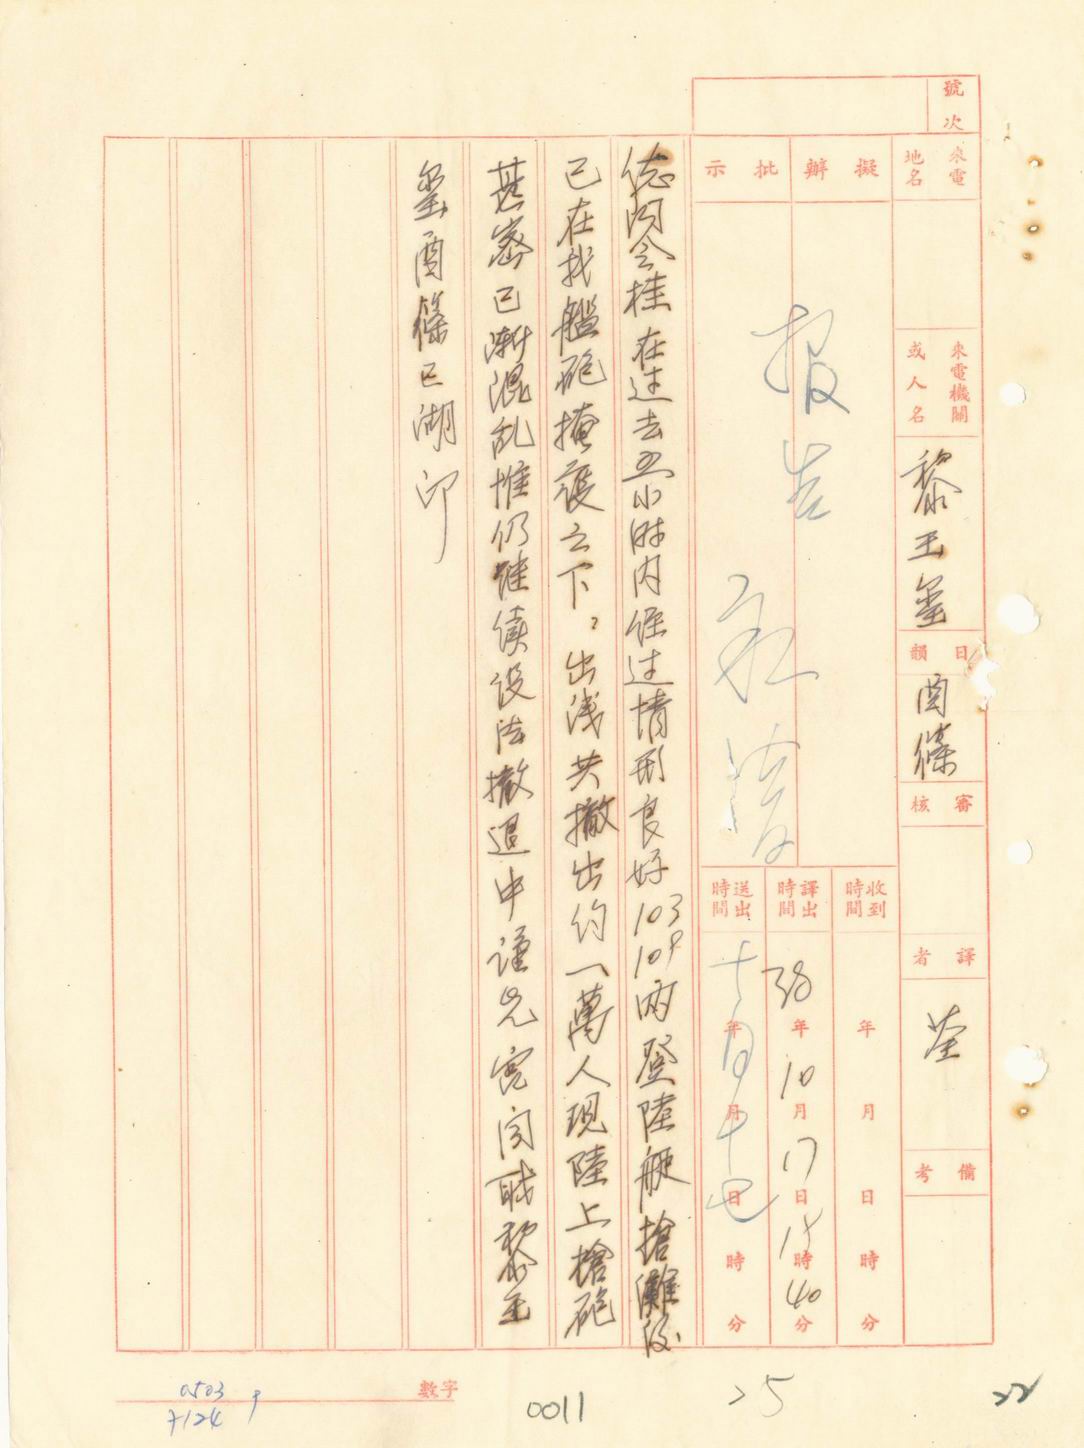 號次
來電地名
來電機關或人名
黎玉璽
日韻
酉篠
審核
譯者
荃
備考
擬辦
批示
報告
收到時間
年 月 日 時 分
譯出時間
38年10月17日18時40分
送出時間
十年月十七日 時 分
總閔令桂在过去五小时内經过情形良好103 109两登陸艇搶灘後
已在我艦砲掩護之下，出浅共撤出约一萬人現陸上槍砲
甚密已漸混乱惟仍继续设法撤退中謹先電闻職黎玉
璽酉篠已湖印
數字
0503
7124
0011
25
22